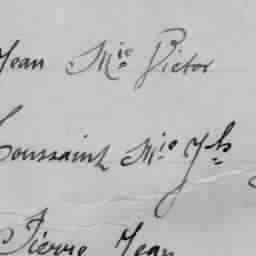 Jean Mie Victor
Toussaint Mie Jh
Pierre Jean